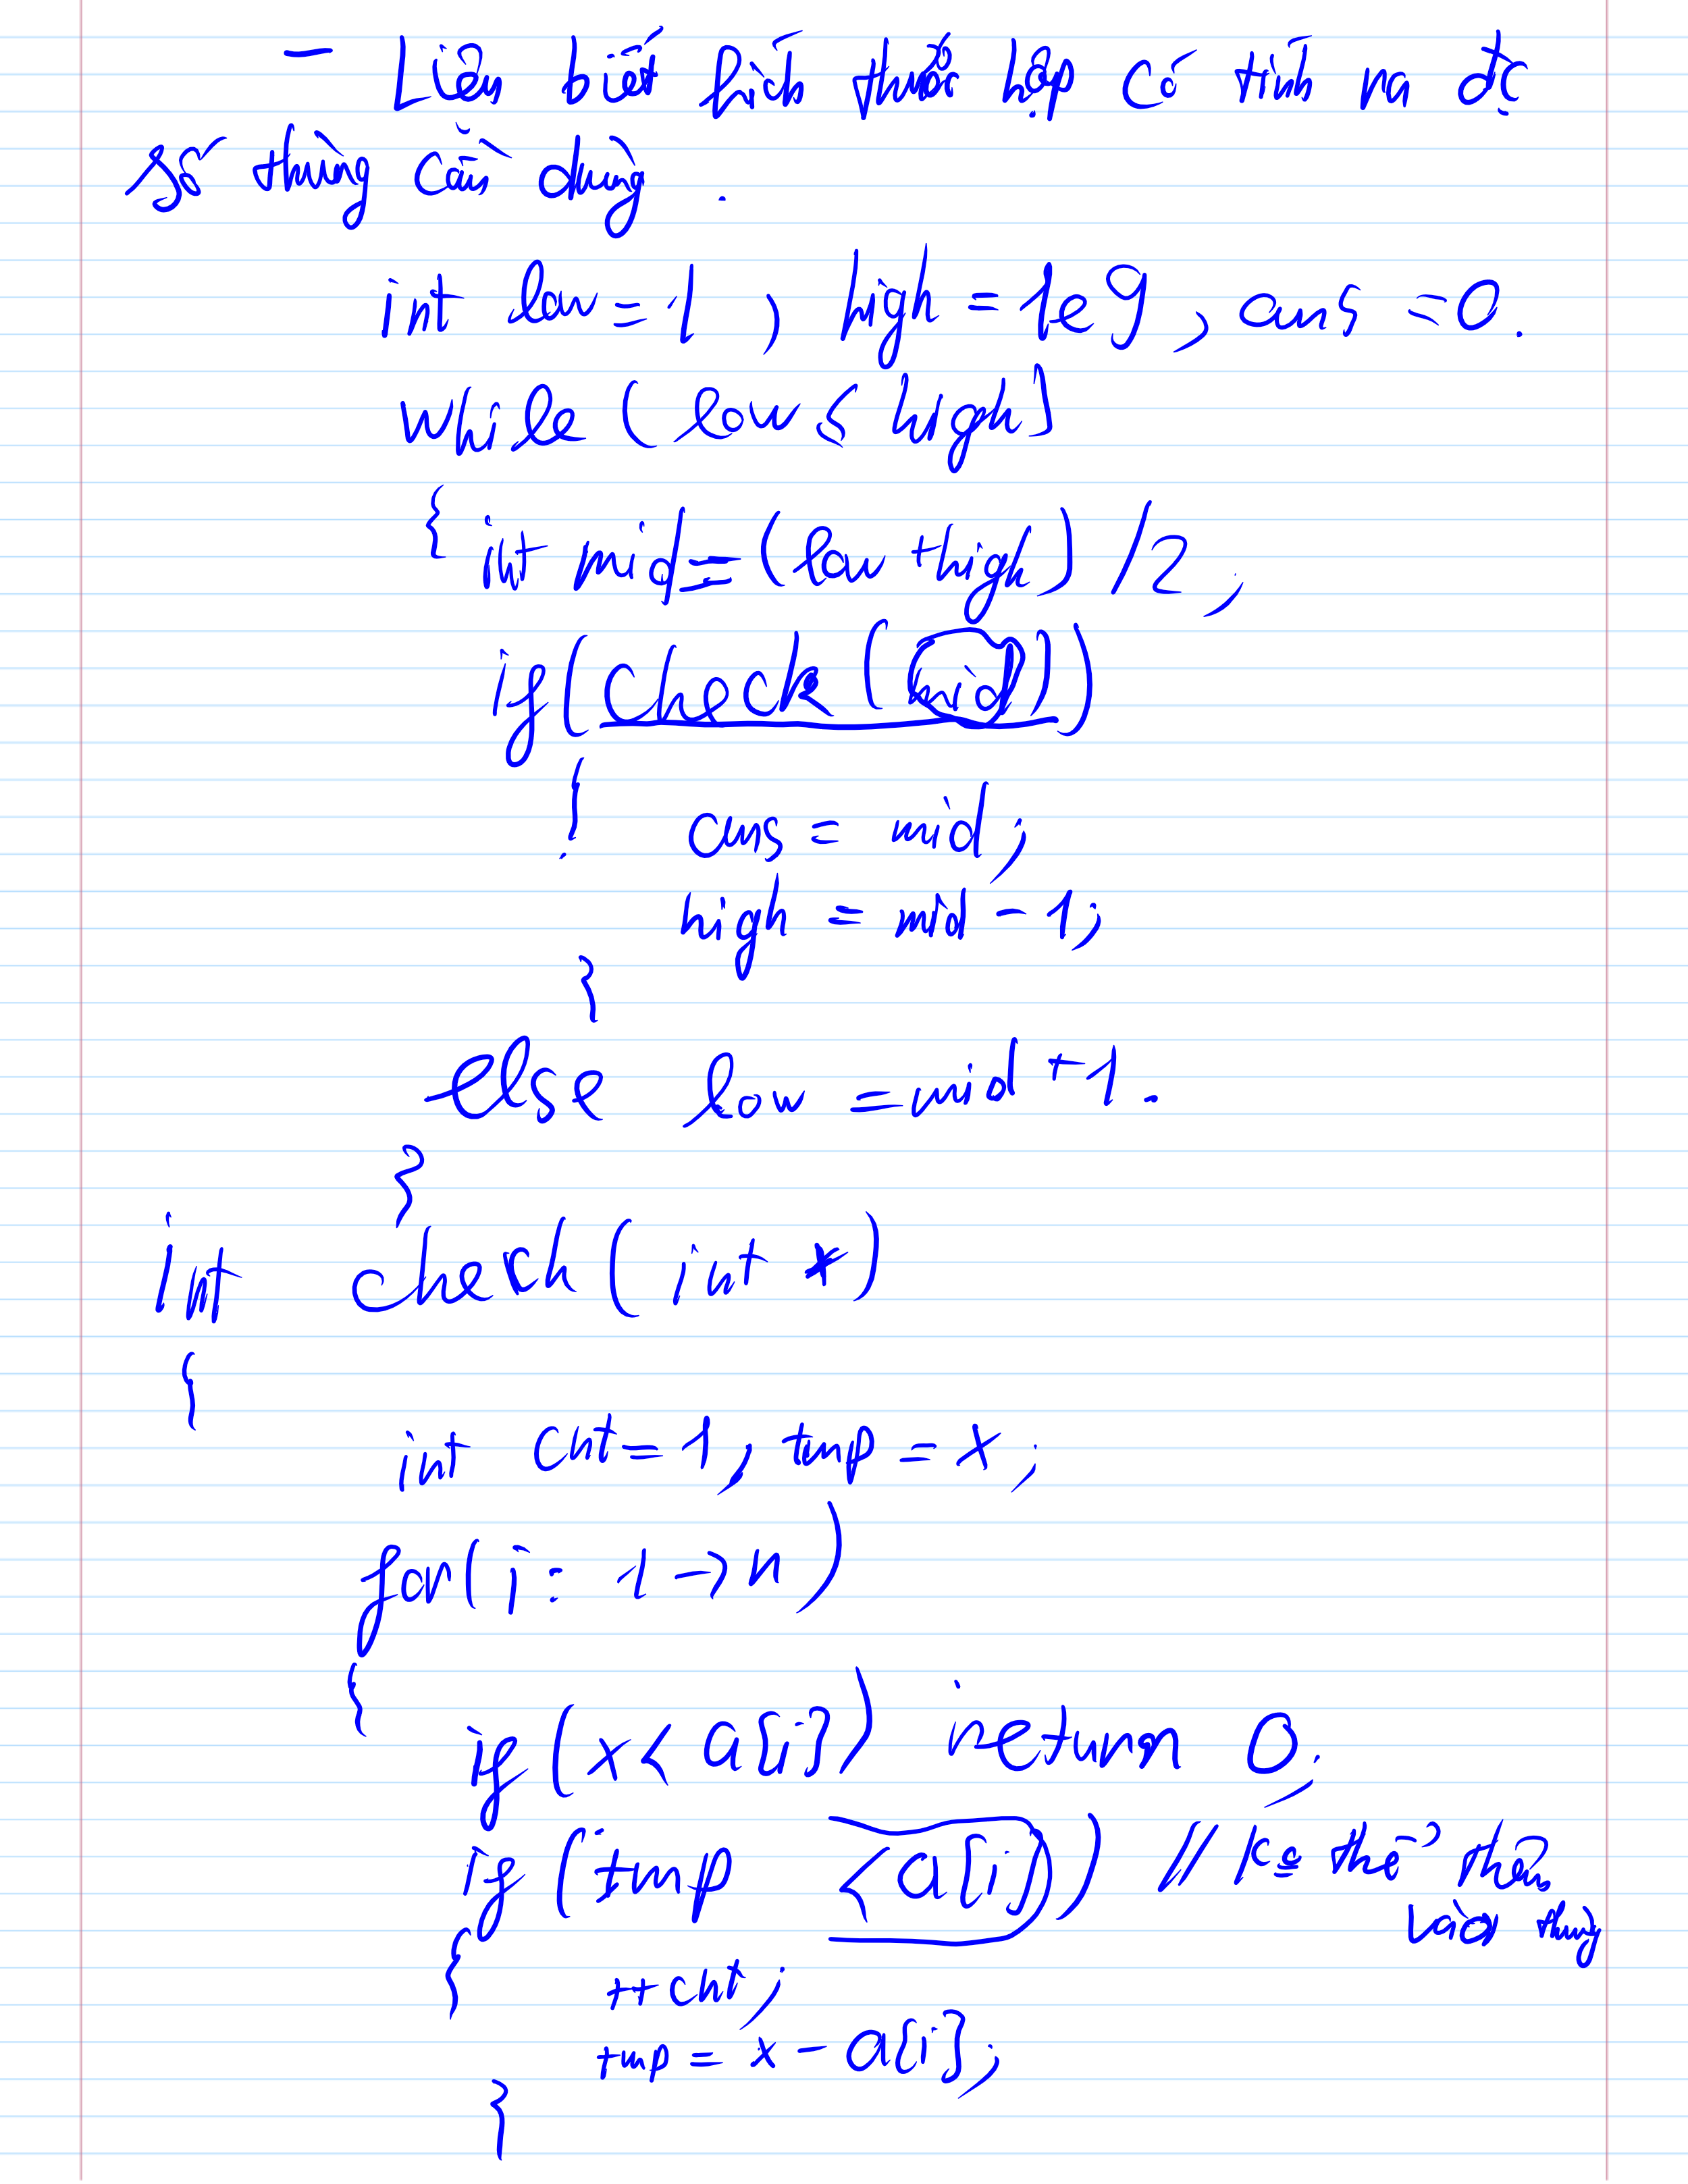 - Liệu biết kích thước hộp có tính ra đc
số thùng cần dùng.
int low = 1, high = 1e9, ans = 0.
while (low ≤ high)
{ int mid = (low + high) / 2,
if (check (mid))
{ ans = mid;
high = mid - 1;
}
else low = mid + 1.
}
int check (int x)
{
int cnt = 1, tmp = x;
for (i: 1 → n)
{
if (x < a[i]) return 0;
if (tmp < a[i]) // ko thể thêm
vào thùng
{ ++cnt;
tmp = x - a[i];
}